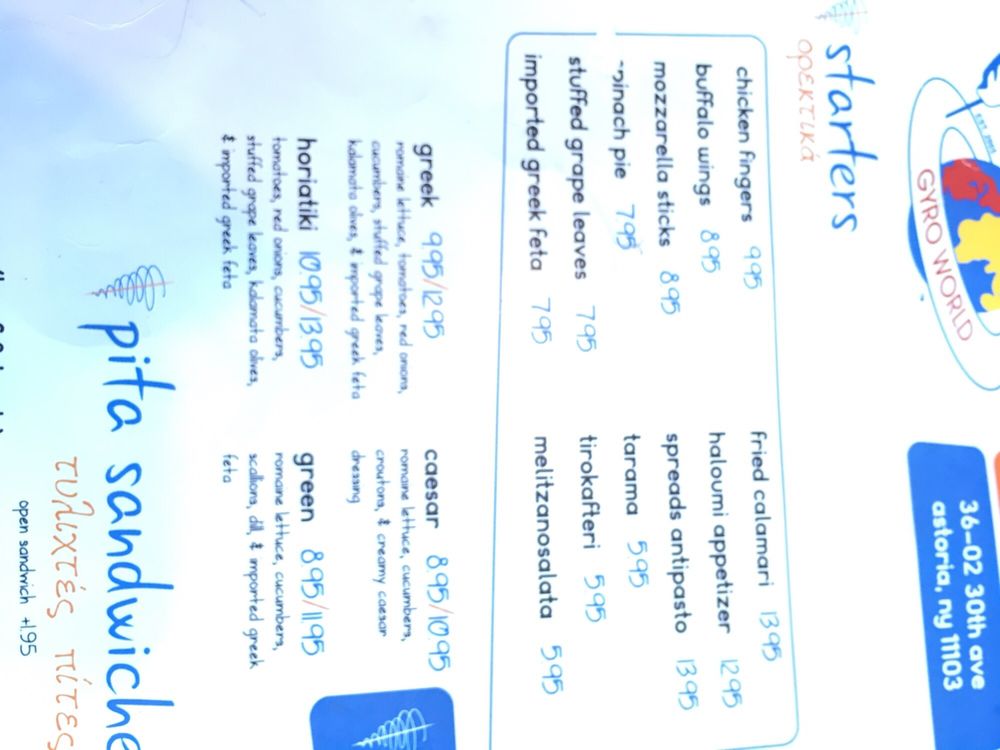 EST. 2005
GYRO WORLD
36-02 30th ave
astoria, ny 11103
starters
ορεκτικά
chicken fingers 9.95
buffalo wings 8.95
mozzarella sticks 8.95
pinach pie 7.95
stuffed grape leaves 7.95
imported greek feta 7.95
fried calamari 13.95
haloumi appetizer 12.95
spreads antipasto 13.95
tarama 5.95
tirokafteri 5.95
melitzanosalata 5.95
greek 9.95/12.95
romaine lettuce, tomatoes, red onions,
cucumbers, stuffed grape leaves,
kalamata olives, & imported greek feta
horiatiki 10.95/13.95
tomatoes, red onions, cucumbers,
stuffed grape leaves, kalamata olives,
& imported greek feta
caesar 8.95/10.95
romaine lettuce, cucumbers,
croutons, & creamy caesar
dressing
green 8.95/11.95
romaine lettuce, cucumbers,
scallions, dill, & imported greek
feta
pita sandwiche
τυλιχτές πίτες
open sandwich +1.95